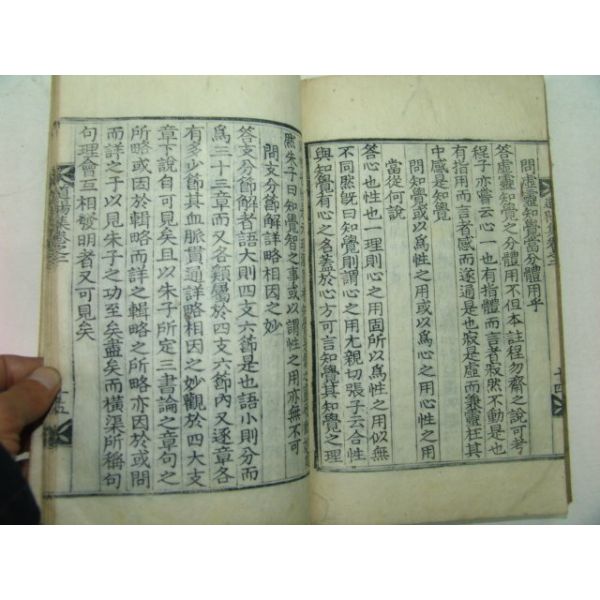 問虛靈知覺當分體用乎
答虛靈知覺之分體用不但本註程勿齋之說可考
程子亦嘗云心一也有指體而言者寂然不動是也
有指用而言者感而遂通是也寂是虛而兼靈在其
中感是知覺
問知覺或以爲性之用或以爲心之用心性之用
當從何說
答心也性也一理則心之用固所以爲性之用似無
不同然旣曰知覺則謂心之用尤親切張子云合性
與知覺有心之名蓋於心方可言知覺其知覺之理
然朱子曰知覺智之事或以謂性之用亦無不可
問支分節解詳略相因之妙
答支分節解者語大則四支六節是也語小則分而
爲三十三章而又各類屬於四支六節內又逐章各
有多少節其血脈貫通詳略相因之妙觀於四大支
章下說自可見矣且以朱子所定三書論之章句之
所略或因於輯略而詳之輯略之所略亦因於或問
而詳之于以見朱子之功至矣盡矣而橫渠所稱句
句理會互相發明者又可見矣
集卷之二